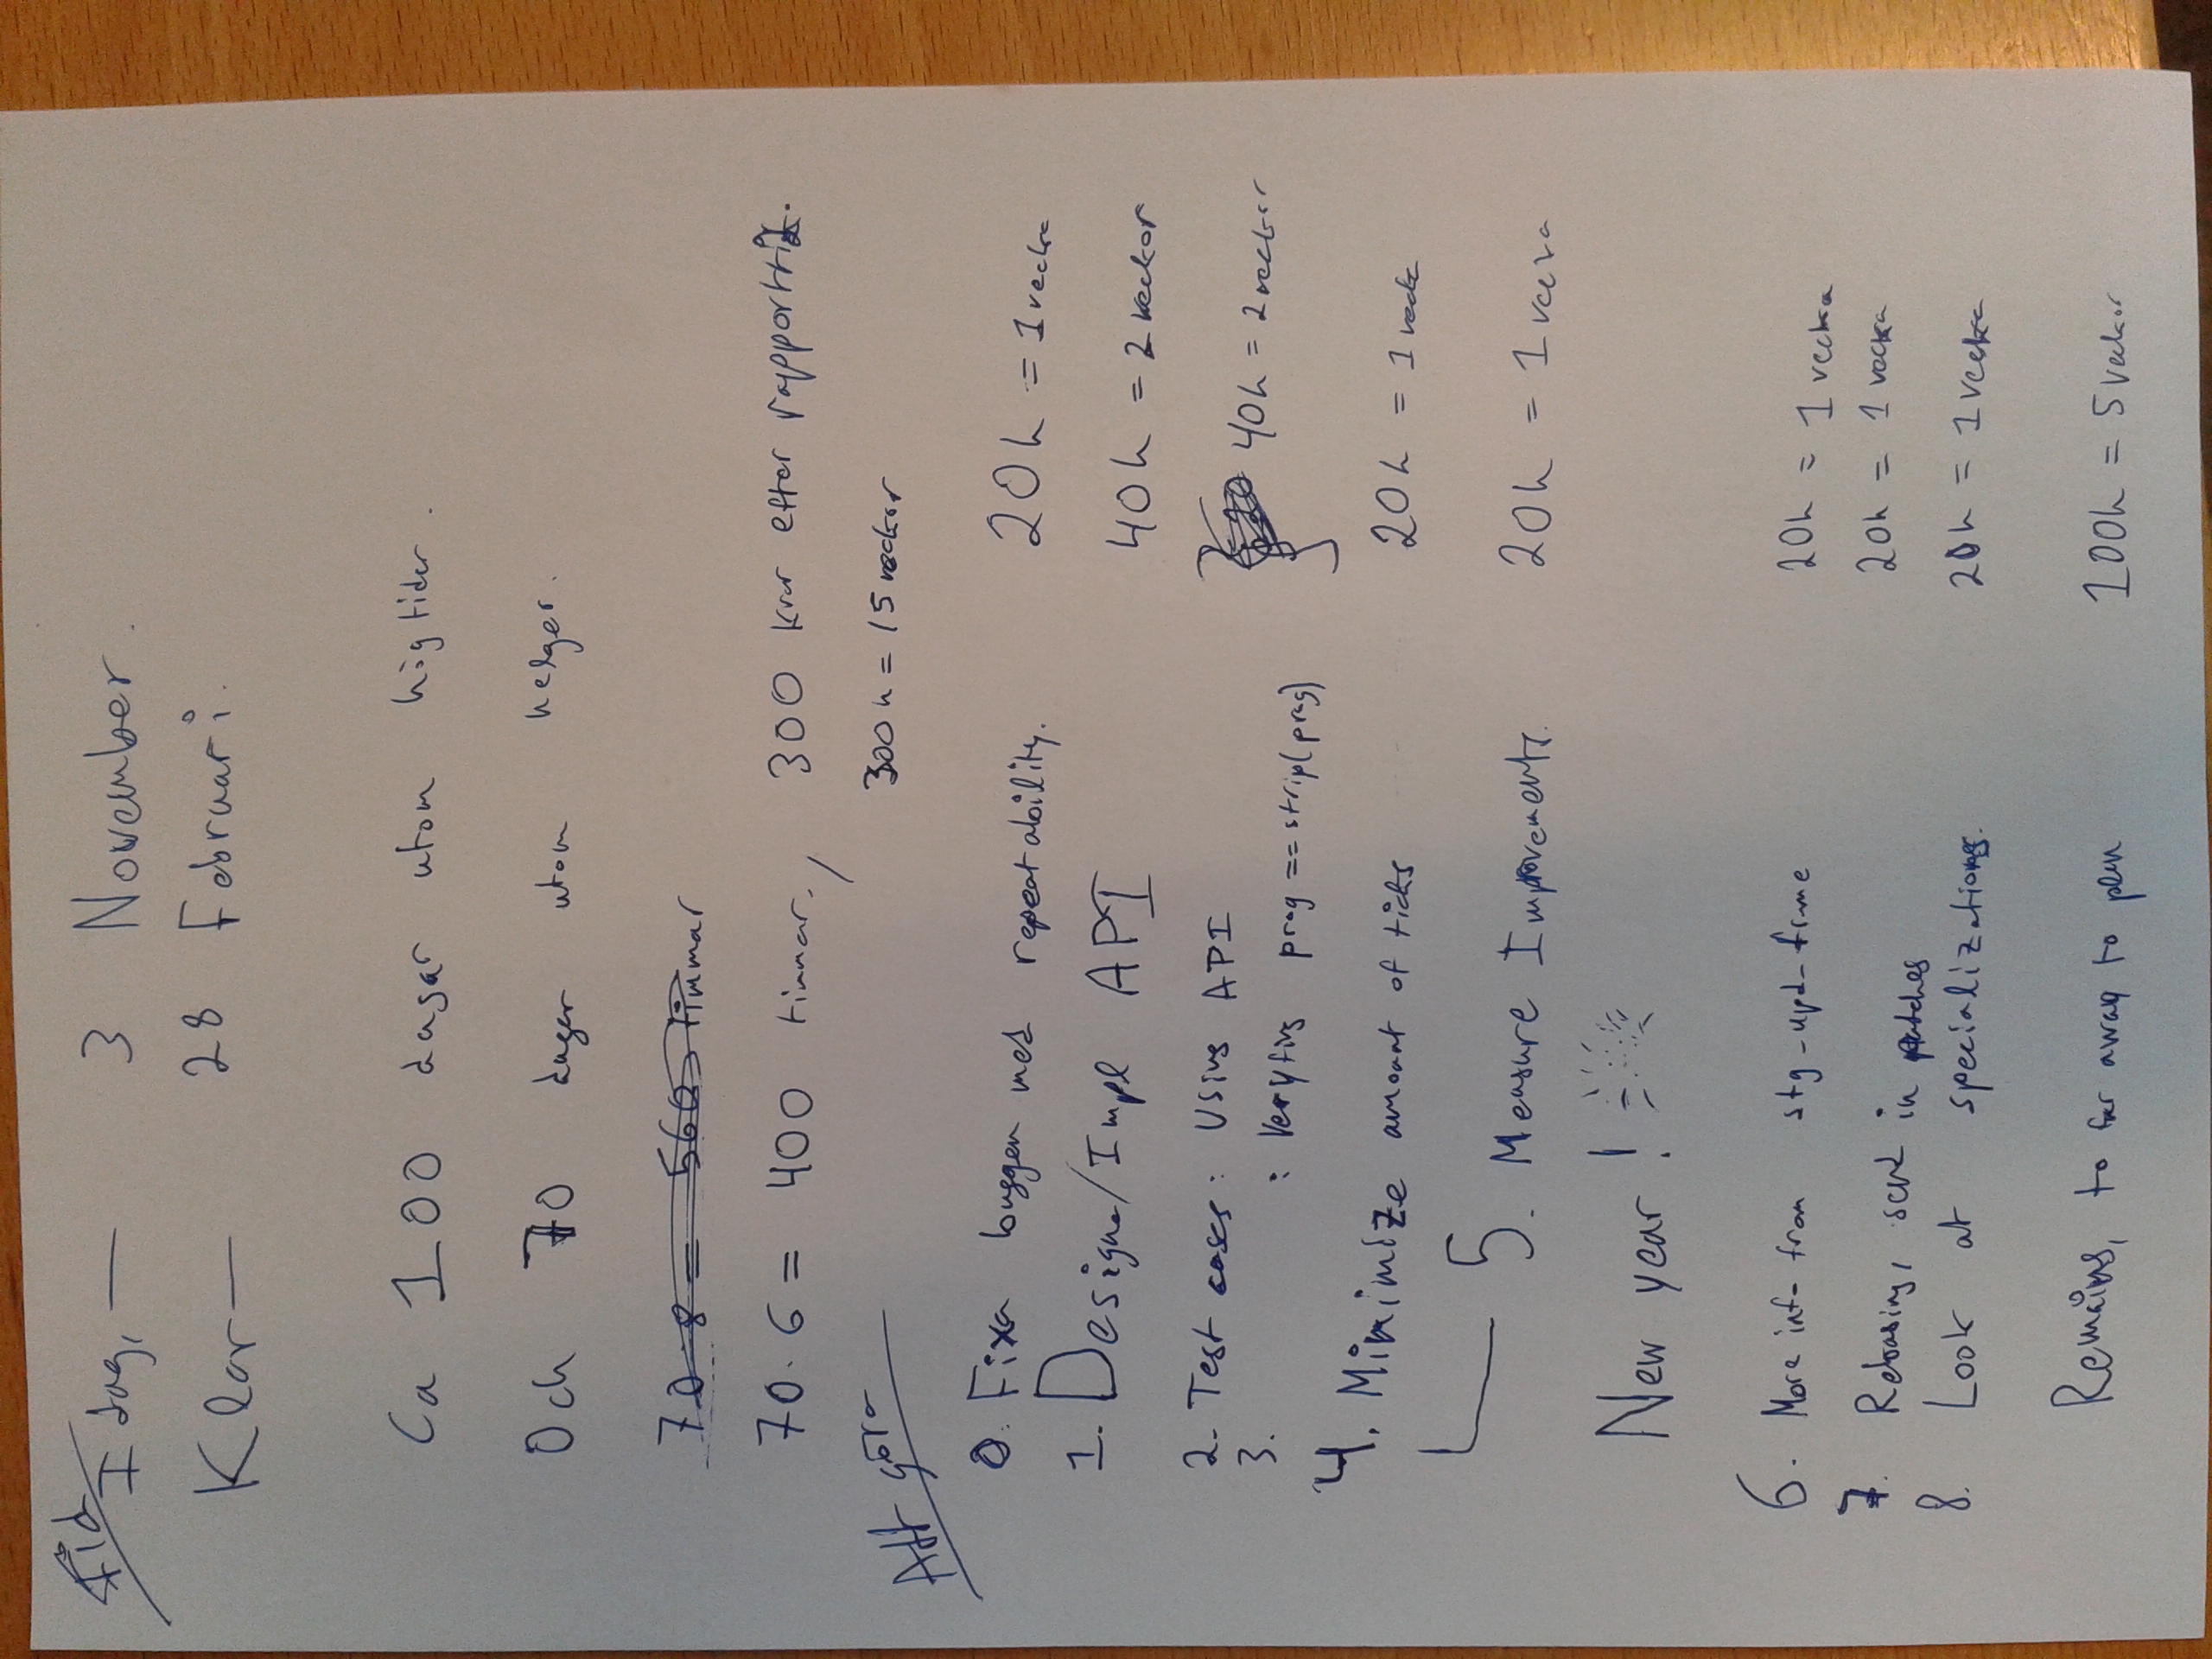 Tid
Idag, — 3 November.
Klar — 28 Februari.
Ca 100 dagar utom högtider.
Och 70 dagar utom helger.
70·8 = 560 timmar
70·6 = 400 timmar, 300 kvar efter rapporttid.
300h = 15 veckor
Att göra
0. Fixa buggen med repeatability. 20h = 1 vecka
1. Designa/Impl API 40h = 2 veckor
2. Test cases: Using API
3. : Veryfing prog == strip(prog) 40h = 2 veckor
4. Minimize amount of ticks 20h = 1 vecka
5. Measure Improvements. 20h = 1 vecka
New year!
6. More info from stg_upd_frame 20h = 1 vecka
7. Rebasing, send in patches 20h = 1 vecka
8. Look at specializations. 20h = 1 vecka
Remains, to far away to plan 100h = 5 veckor